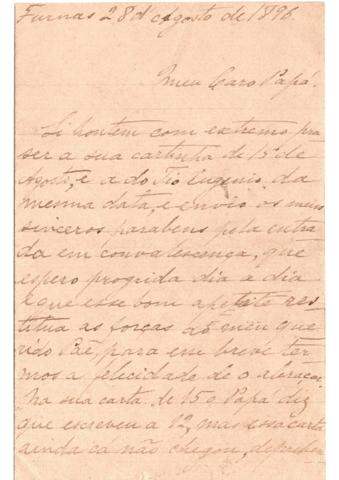 Furnas 28 d'Agosto de 1896.
Meu Caro Papá.
Li hontem com extremo pra
ser a sua cartinha de 15 de
Agosto, e a do Tio Eugenio, da
mesma data, e envio os meus
sinceros parabens pela entra
da em convalescença, que
espero progrida dia a dia
e que esse bom apetite res
titua as forças ao meu que
rido Pae, para em breve ter
mos a felicidade de o abraçar.
Na sua carta de 15 o Papá diz
que escreveu a 12, mas essa carta
ainda cá não chegou,